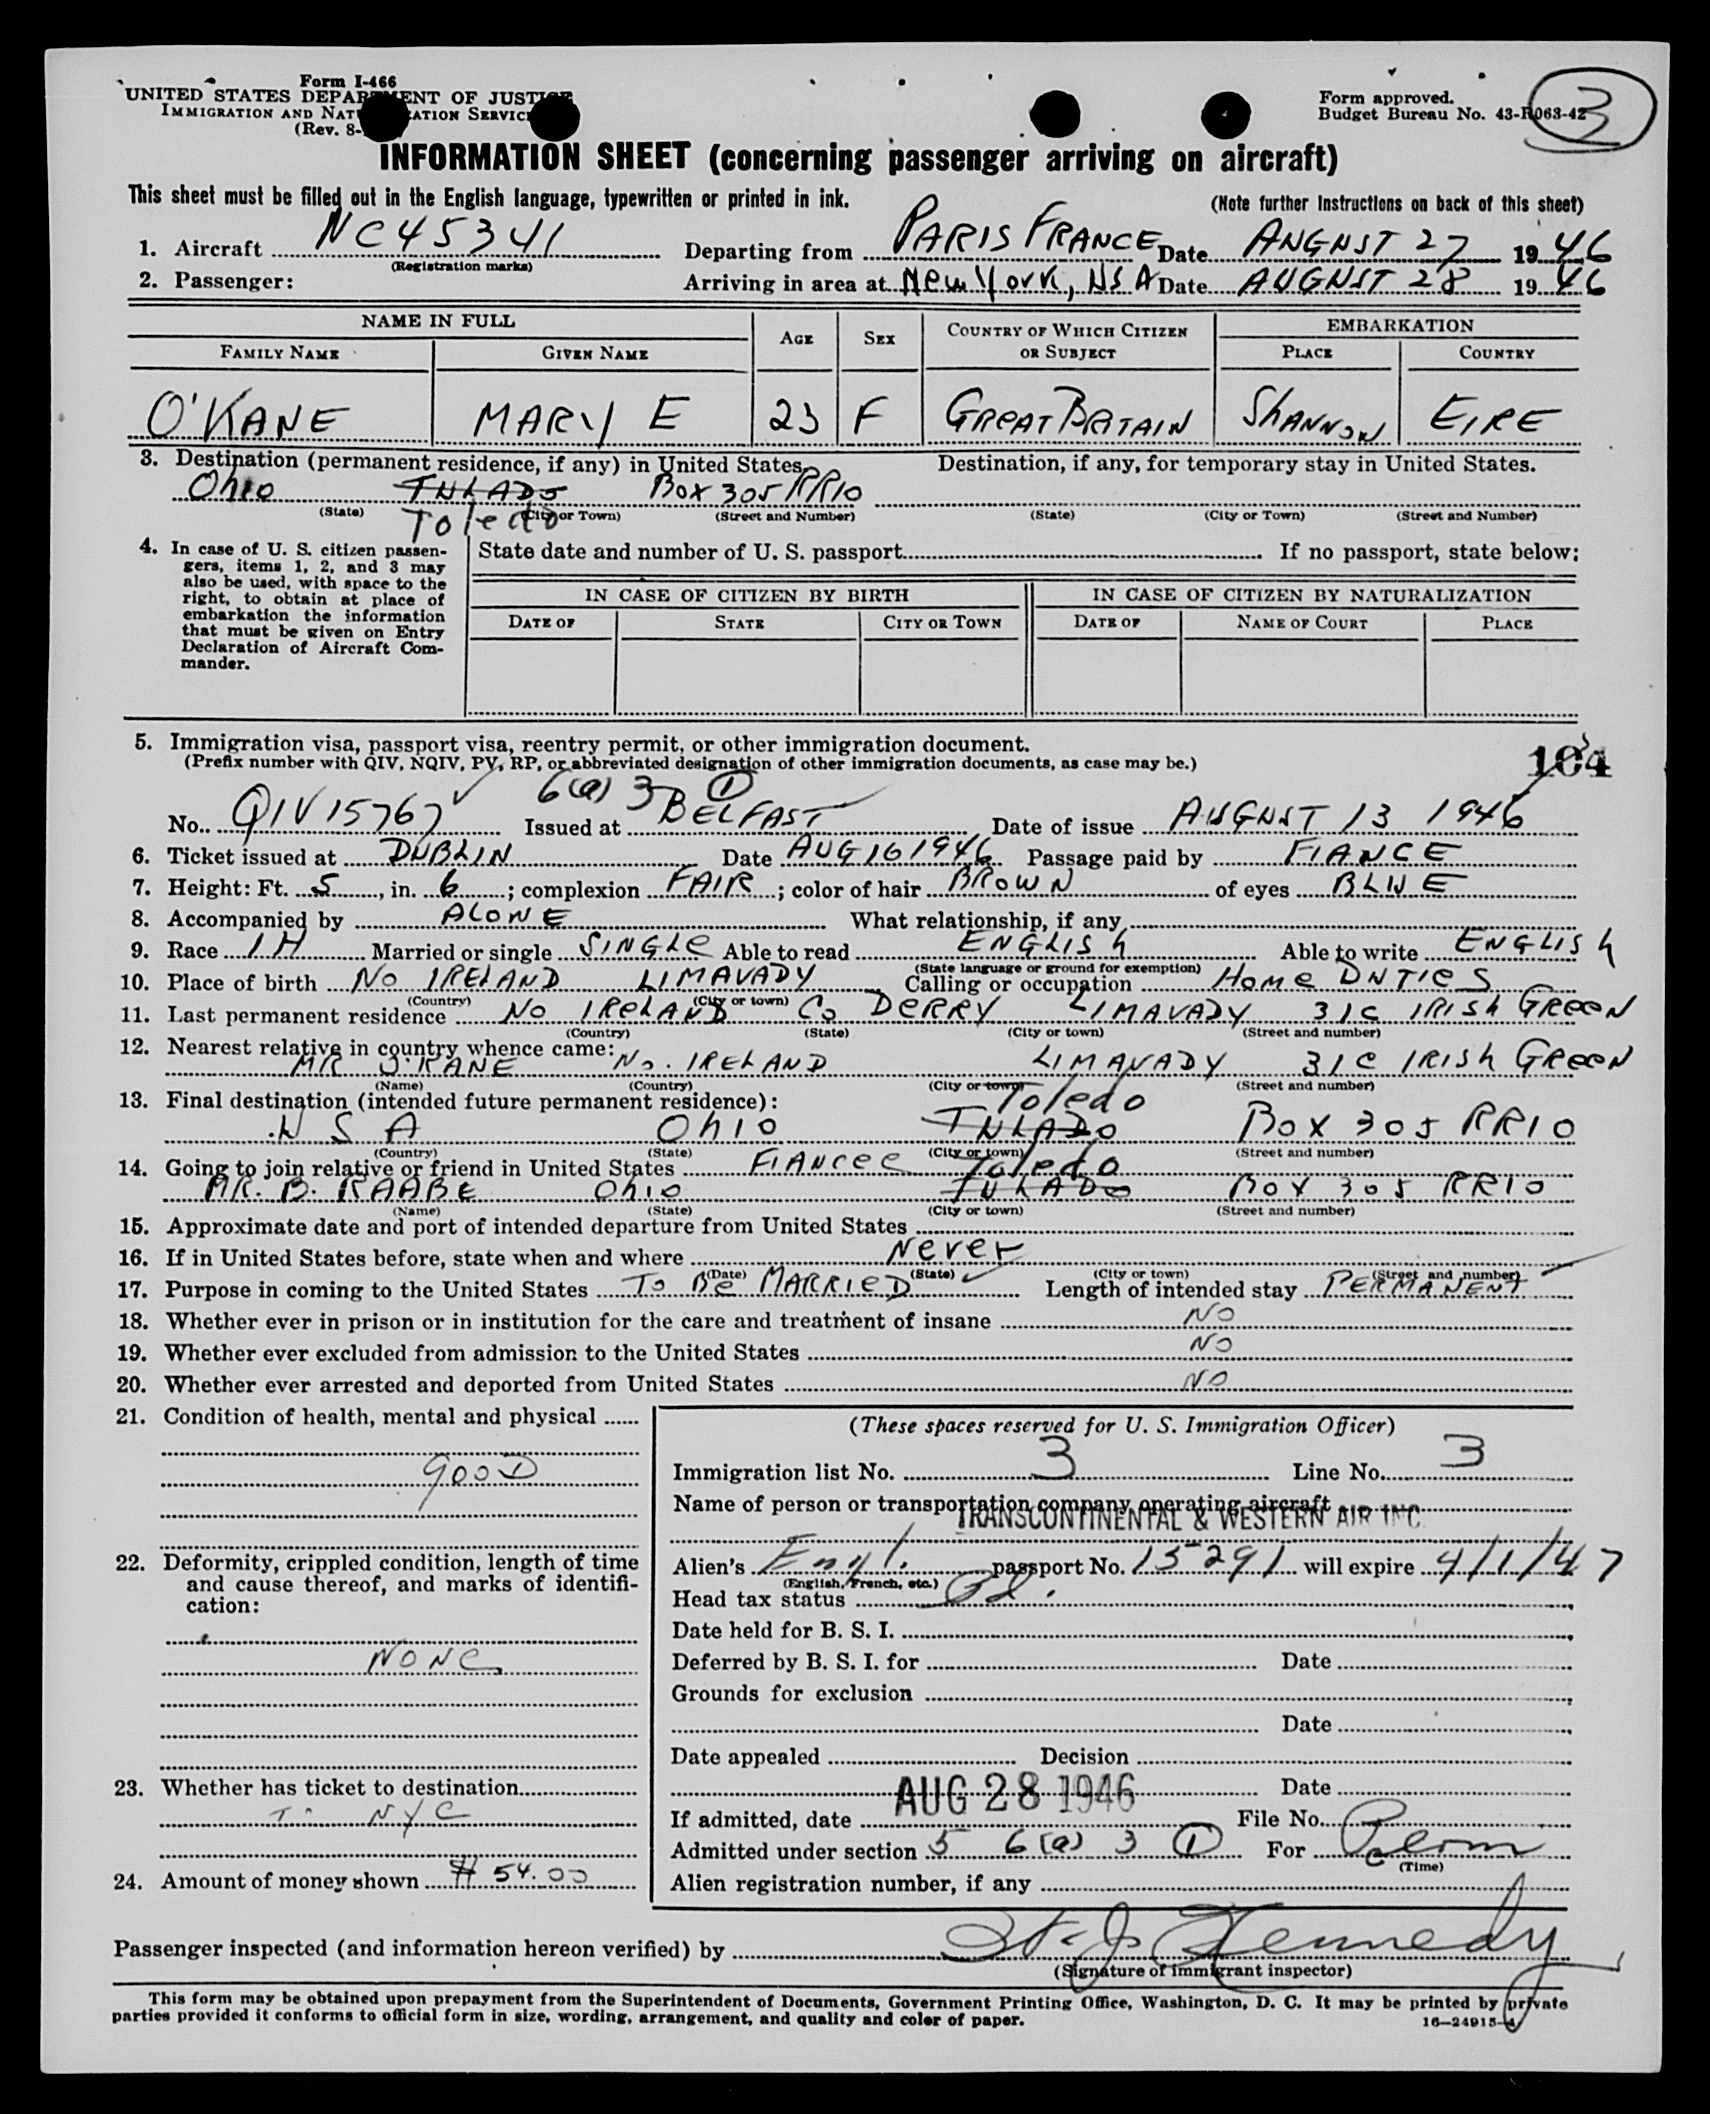 Form I-466
UNITED STATES DEPARTMENT OF JUSTICE
IMMIGRATION AND NATURALIZATION SERVICE
(Rev. 8-
Form approved.
Budget Bureau No. 43-R063-42
3
INFORMATION SHEET (concerning passenger arriving on aircraft)
This sheet must be filled out in the English language, typewritten or printed in ink. (Note further instructions on back of this sheet)
1. Aircraft NC45341 Departing from PARIS FRANCE Date AUGUST 27 1946
(Registration marks)
2. Passenger: Arriving in area at New York, USA Date AUGUST 28 1946
NAME IN FULL AGE SEX COUNTRY OF WHICH CITIZEN OR SUBJECT EMBARKATION
FAMILY NAME GIVEN NAME PLACE COUNTRY
O'KANE MARY E 23 F GREAT BRITAIN SHANNON EIRE
3. Destination (permanent residence, if any) in United States Destination, if any, for temporary stay in United States.
Ohio TULADO BOX 305 RR10
(State) (City or Town) (Street and Number) (State) (City or Town) (Street and Number)
Toledo
4. In case of U. S. citizen passen-
gers, items 1, 2, and 3 may
also be used, with space to the
right, to obtain at place of
embarkation the information
that must be given on Entry
Declaration of Aircraft Com-
mander.
State date and number of U. S. passport If no passport, state below:
IN CASE OF CITIZEN BY BIRTH IN CASE OF CITIZEN BY NATURALIZATION
DATE OF STATE CITY OR TOWN DATE OF NAME OF COURT PLACE
5. Immigration visa, passport visa, reentry permit, or other immigration document.
(Prefix number with QIV, NQIV, PV, RP, or abbreviated designation of other immigration documents, as case may be.)
104
6(a) 3 1
No. QIV 15767 Issued at BELFAST Date of issue AUGUST 13 1946
6. Ticket issued at DUBLIN Date AUG 16 1946 Passage paid by FIANCE
7. Height: Ft. 5, in. 6; complexion FAIR; color of hair BROWN of eyes BLUE
8. Accompanied by ALONE What relationship, if any
9. Race IH Married or single SINGLE Able to read ENGLISH Able to write ENGLISH
(State language or ground for exemption)
10. Place of birth NO IRELAND LIMAVADY Calling or occupation HOME DUTIES
(Country) (City or town)
11. Last permanent residence NO IRELAND Co DERRY LIMAVADY 31C IRISH GREEN
(Country) (State) (City or town) (Street and number)
12. Nearest relative in country whence came:
MR O'KANE NO. IRELAND LIMAVADY 31C IRISH GREEN
(Name) (Country) (City or town) (Street and number)
13. Final destination (intended future permanent residence): Toledo
U S A Ohio TULADO BOX 305 RR10
(Country) (State) (City or town) (Street and number)
14. Going to join relative or friend in United States FIANCEE Toledo
MR. B. RAABE Ohio TULADO BOX 305 RR10
(Name) (State) (City or town) (Street and number)
15. Approximate date and port of intended departure from United States
16. If in United States before, state when and where Never
(Date) (State) (City or town) (Street and number)
17. Purpose in coming to the United States TO Be MARRIED Length of intended stay PERMANENT
18. Whether ever in prison or in institution for the care and treatment of insane NO
19. Whether ever excluded from admission to the United States NO
20. Whether ever arrested and deported from United States NO
21. Condition of health, mental and physical
GOOD
22. Deformity, crippled condition, length of time
and cause thereof, and marks of identifi-
cation:
NONE
23. Whether has ticket to destination
To NYC
24. Amount of money shown $54.00
(These spaces reserved for U. S. Immigration Officer)
Immigration list No. 3 Line No. 3
Name of person or transportation company operating aircraft
TRANSCONTINENTAL & WESTERN AIR INC
Alien's Engl. passport No. 15291 will expire 4/1/47
(English, French, etc.)
Head tax status Pd.
Date held for B. S. I.
Deferred by B. S. I. for Date
Grounds for exclusion
Date
Date appealed Decision
Date
If admitted, date AUG 28 1946 File No.
Admitted under section 5 6(a) 3 1 For Perm
(Time)
Alien registration number, if any
Passenger inspected (and information hereon verified) by Kennedy
(Signature of immigrant inspector)
This form may be obtained upon prepayment from the Superintendent of Documents, Government Printing Office, Washington, D. C. It may be printed by private
parties provided it conforms to official form in size, wording, arrangement, and quality and color of paper.
16—24915-4